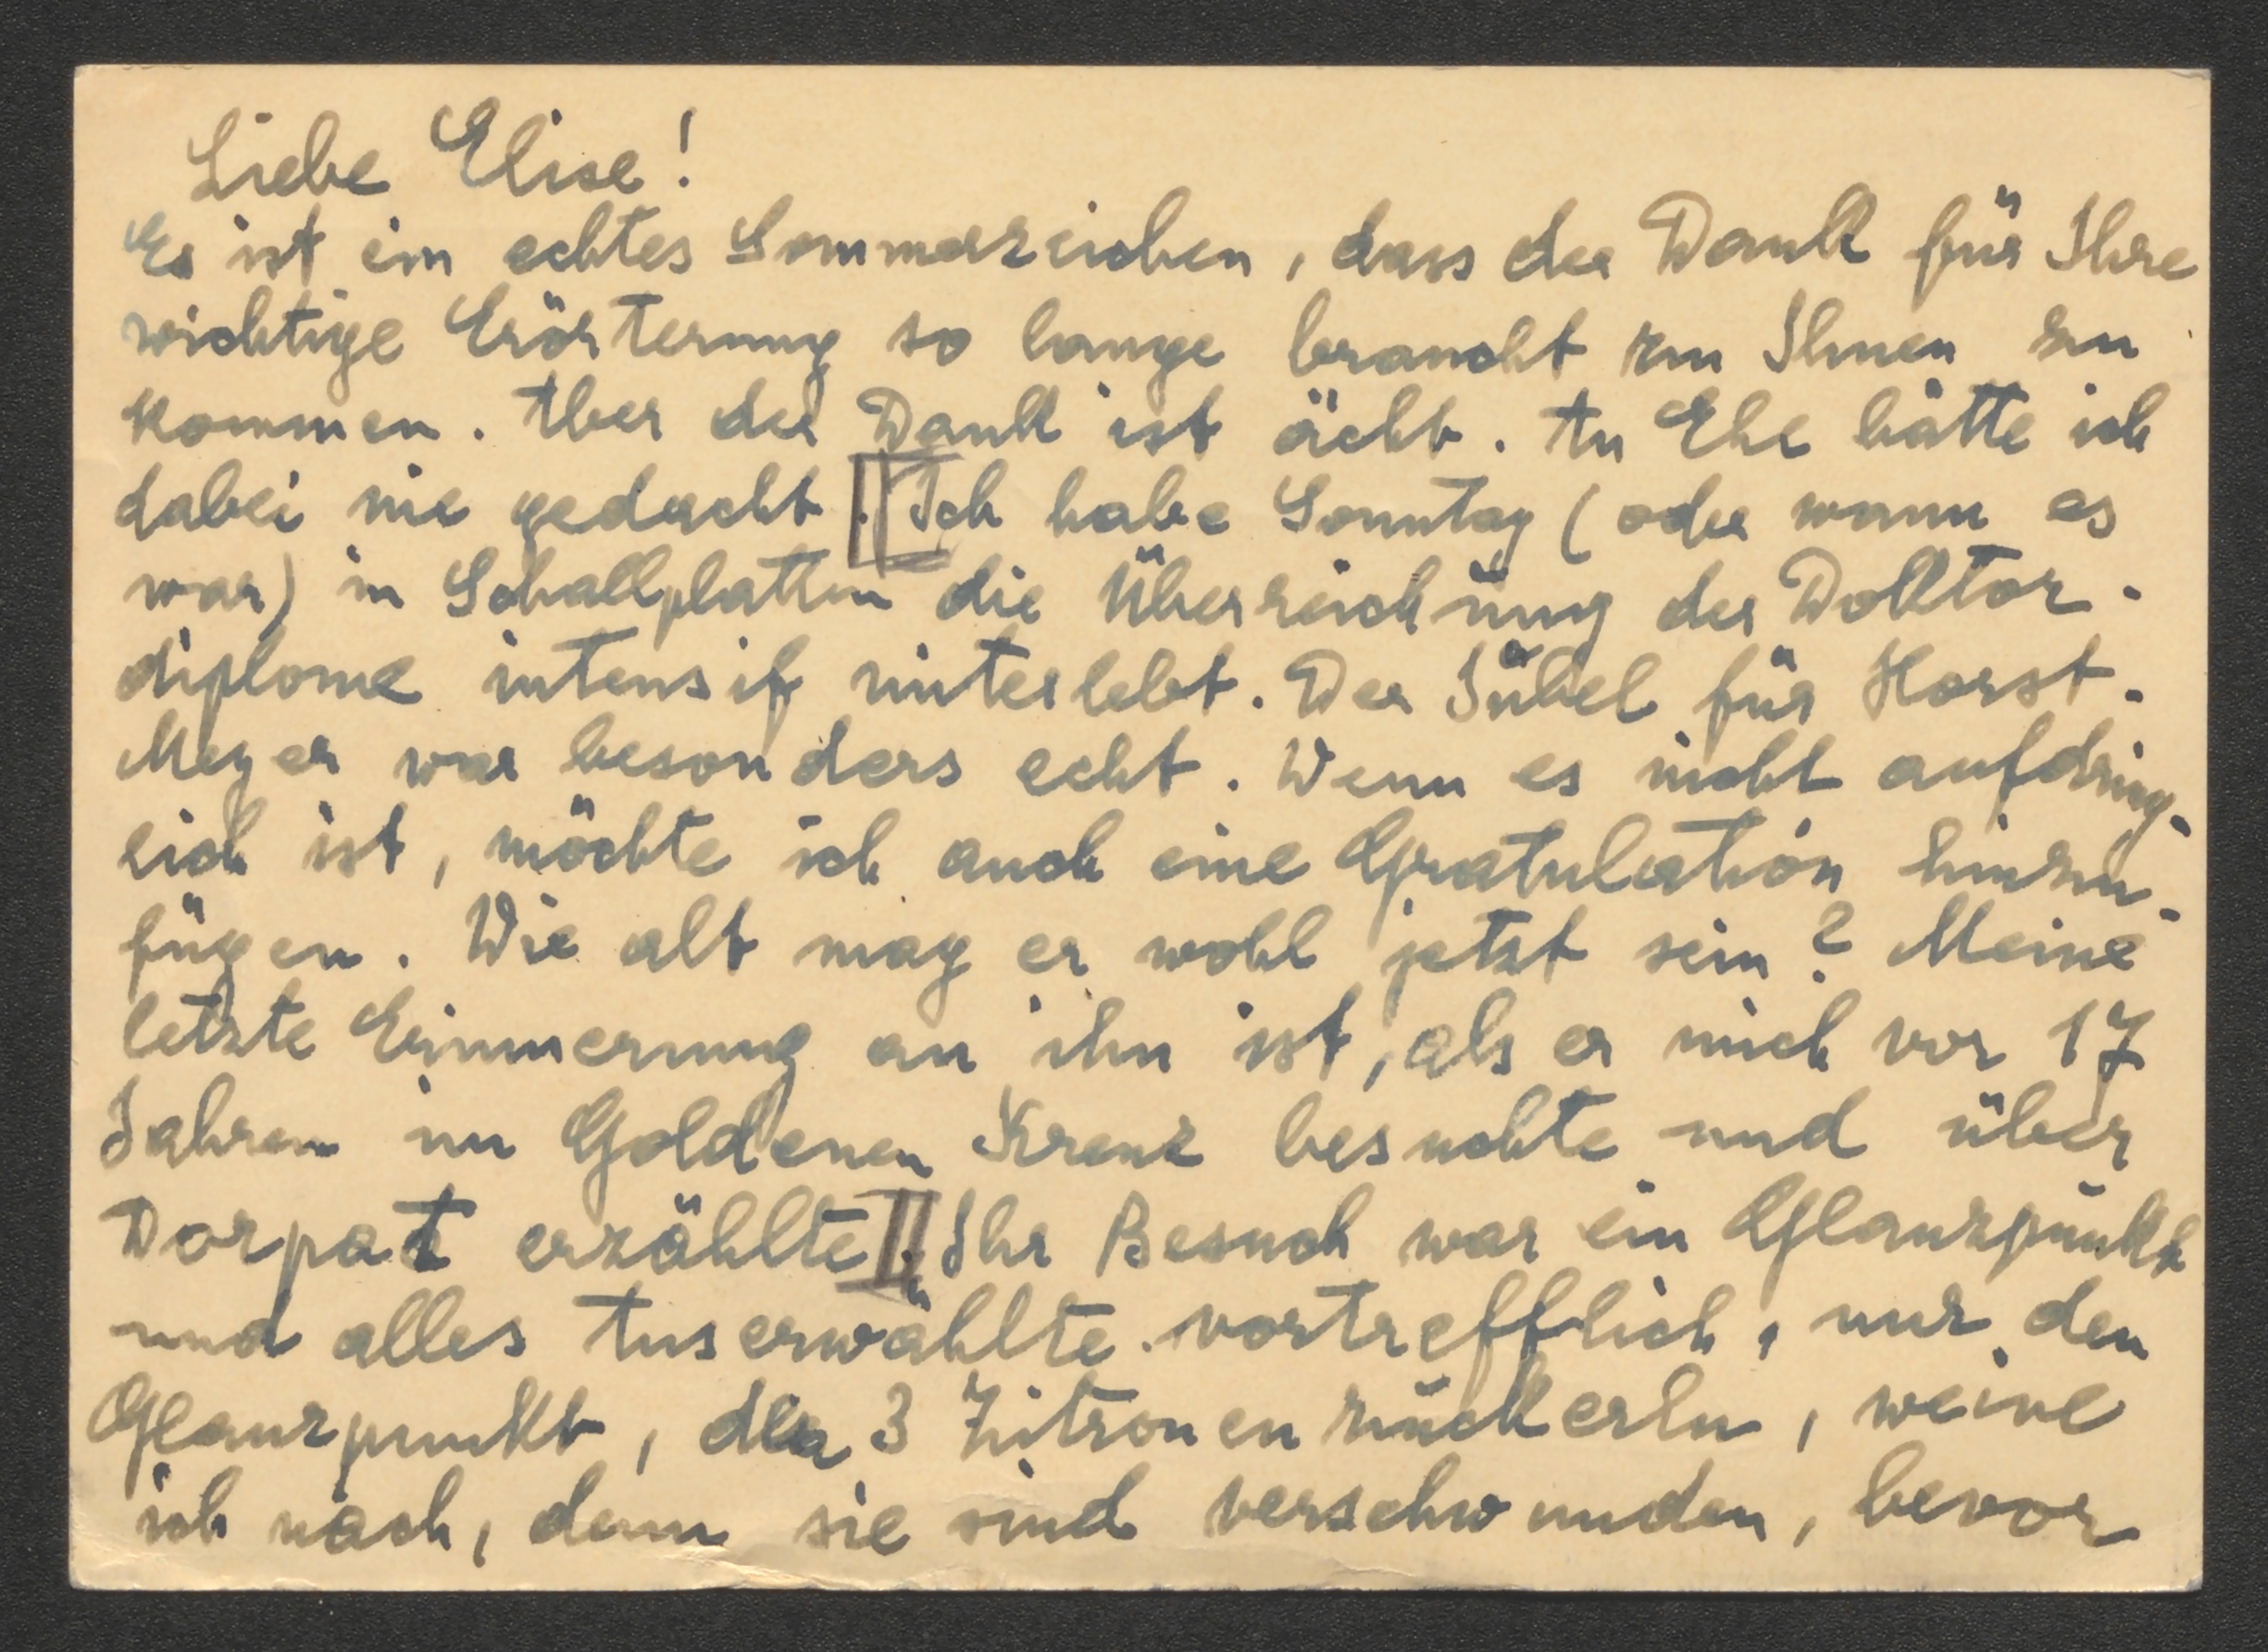 Liebe Elise!
Es ist ein echtes Sommerzeichen, dass der Dank für Ihre
wichtige Erörterung so lange braucht zu Ihnen zu
kommen. Aber der Dank ist ächt. An Ehe hätte ich
dabei nie gedacht. Ich habe Sonntag (oder wann es
war) in Schallplatten die Überreichung der Doktor-
diplome intensif miterlebt. Der Jubel für Horst-
Meyer war besonders echt. Wenn es nicht aufdring-
lich ist, möchte ich auch eine Gratulation hinzu-
fügen. Wie alt mag er wohl jetzt sein? Meine
letzte Erinnerung an ihn ist, als er mich vor 17
Jahren im Goldenen Kreuz besuchte und über
Dorpat erzählte. Ihr Besuch war ein Glanzpunkt
und alles Auserwählte vortrefflich, nur den
Glanzpunkt, der 3 Zitronenzückerln, weine
ich nach, denn sie sind verschwunden, bevor